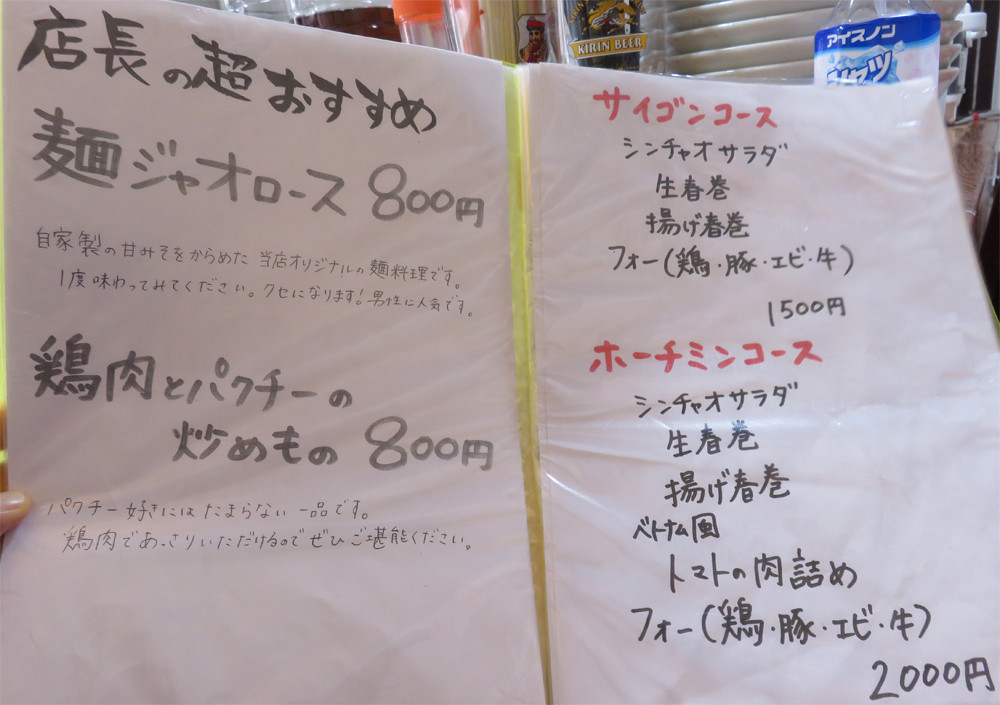 店長の超おすすめ
麺ジャオロース 800円
自家製の甘みそをからめた 当店オリジナルの麺料理です。
1度味わってみてください。クセになります!男性に人気です。
鶏肉とパクチーの
炒めもの 800円
パクチー好きにはたまらない一品です。
鶏肉であっさりいただけるのでぜひご堪能ください。
KIRIN BEER
アイスノン
シャツ
サイゴンコース
シンチャオサラダ
生春巻
揚げ春巻
フォー(鶏・豚・エビ・牛)
1500円
ホーチミンコース
シンチャオサラダ
生春巻
揚げ春巻
ベトナム風
トマトの肉詰め
フォー(鶏・豚・エビ・牛)
2000円